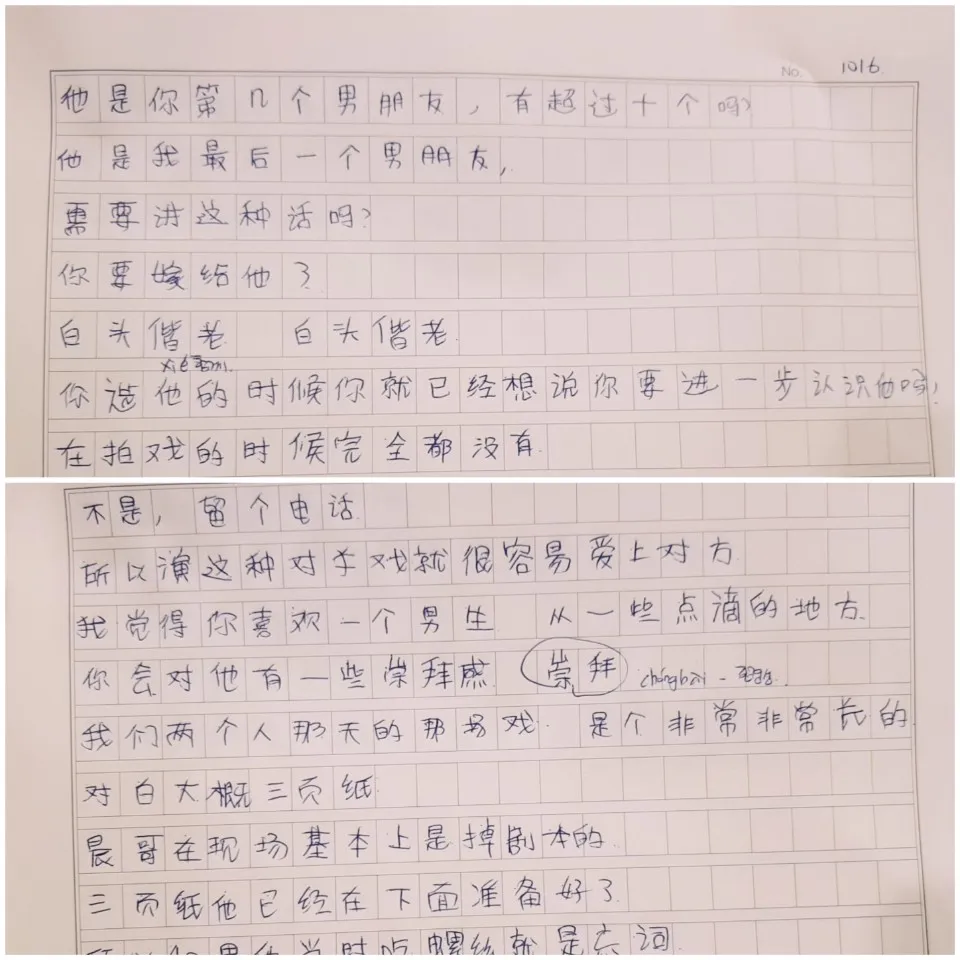 No. 1016
他是你第几个男朋友，有超过十个吗？
他是我最后一个男朋友，
需要讲这种话吗？
你要嫁给他了
白头偕老 白头偕老
xié
你选他的时候你就已经想说你要进一步认识他吗？
在拍戏的时候完全都没有
不是，留个电话
所以演这种对手戏就很容易爱上对方
我觉得你喜欢一个男生 从一些点滴的地方
你会对他有一些崇拜感 崇拜 chóngbài -
我们两个人那天的那场戏 是个非常非常长的
对白大概三页纸
晨哥在现场基本上是掉剧本的
三页纸他已经在下面准备好了
男他当时吃螺丝就是忘词